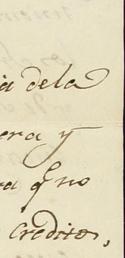 ia dela
era y
ra q̃ no
credito,